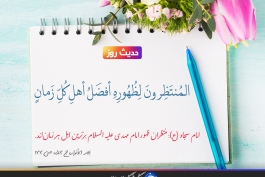 حدیث روز
المُنتَظِرونَ لِظُهُورِهِ أفضَلُ أهلِ كُلِّ زَمانٍ
امام سجاد (ع): منتظران ظهور امام مهدی علیه السلام برترین اهل هر زمان‌اند.